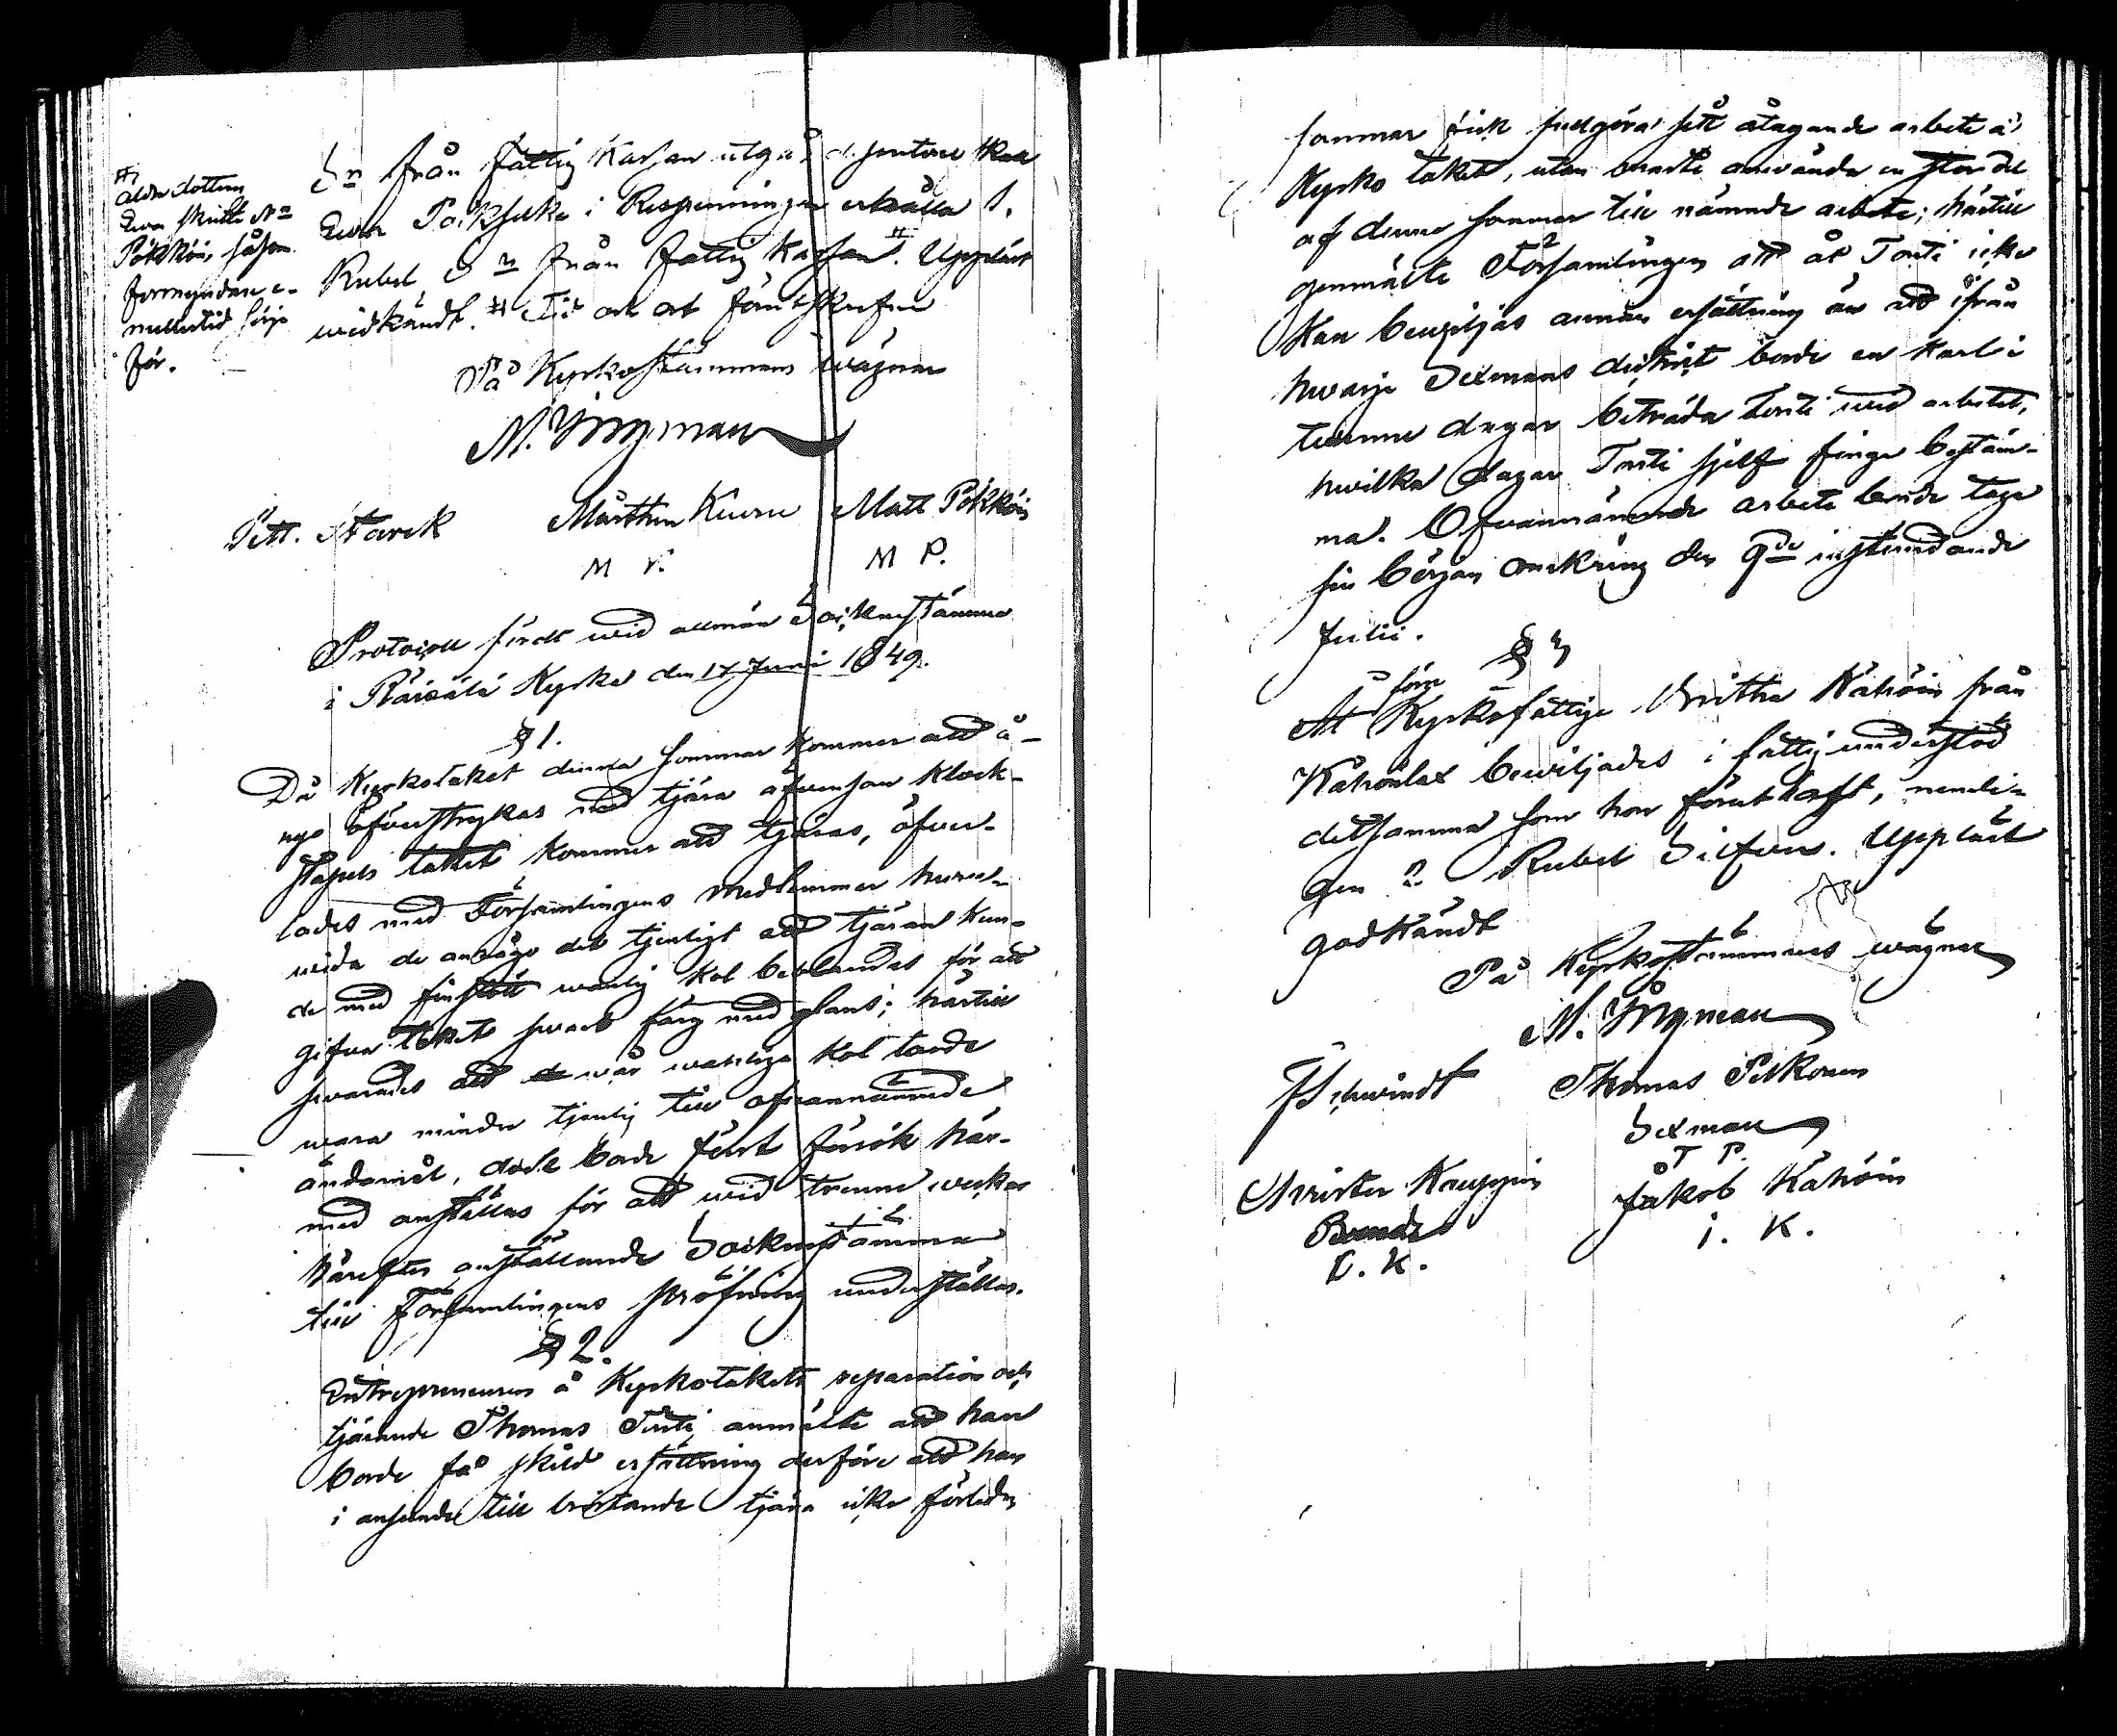 #
äldre dottern
Ewa skulle
Pökköin såsom
formyndare e-
mellertid sörja
för.
Sr från Fattig Kassan utgå, dessutom skall
Ewa Poiksilkä i Respenningar erhålla 1.
Rubel Sr från Fattig Kassan. # Uppläst
widkändt.
På Kyrkostämmans wägnar
M. Yrgman
Pett. Starck Mårthen Kiuru Matt Pökköin
M P.
Protocoll fördt wid allmän Sockenstämma
i Räisälä Kyrka den 17 Juni 1849.
§ 1.
Då Kyrkotaket denna sommar kommer att å-
nyo öfverstrykas med tjära äfvensom Klock-
stapels taket kommer att tjäras, öfver-
lades med Församlingens medlemmar huru-
wida de ansågo det tjenligt att tjäran kun-
de med finstött wanlig kol beblandas för att
gifva taket swart färg med glans; härtill
swarades att wår wanliga kol torde
wara mindre tjenlig till ofvannämnde
ändamål, dock borde först försök här-
med anställas för att wid trenne weckor
härefter anställande Sockenstämma
till Församlingens pröfning underställas.
§ 2.
Entrepreneuren å Kyrkotakets reparation och
tjärande Thomas Torti anmälte att han
borde få skild ersättning derföre att han
i anseende till bristande tjära icke förleden
sommar fick fullgöra sitt åtagande arbete å
Kyrko taket, utan måste använda en stor del
af denna sommar till nämnde arbete; härtill
genmälte Församlingen att åt Torti icke
kan bewiljas annan ersättning än att ifrån
hwarje Sexmans district borde en karl i
tvenne dagar biträda Torti wid arbetet,
hwilka dagar Torti sjelf finge bestäm-
ma. Ofvannämnde arbete borde taga
sin början omkring den 9de instundande
Julii.
§ 3
Åt förra Kyrkofattige Britha Kähöin från
Kähöilax bewiljades i fattig understöd
detsamma som hon förut haft, nemli-
gen 2 Rubel Silfver. Uppläst
godkändt
På Kyrkostämmans wägnar
M. Yrgman
J Schwindt Thomas Pitkonen
Sexman
T P.
Christer Kauppin Jakob Kähöin
Bonde I. K.
C. K.